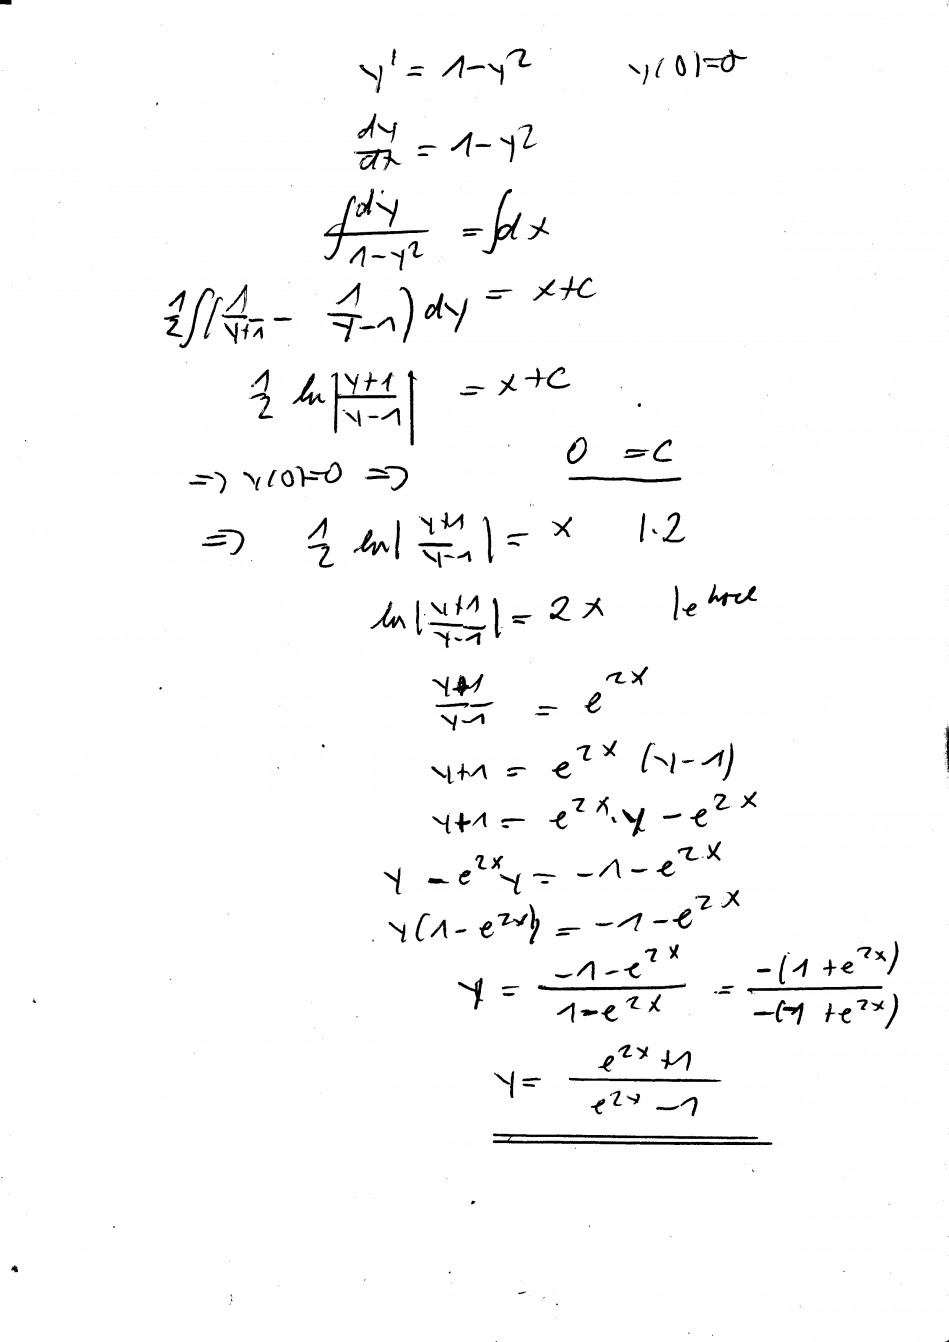 y' = 1-y² y(0)=0
dy/dx = 1-y²
∫ dy/(1-y²) = ∫dx
1/2 ∫(1/(y+1) - 1/(y-1)) dy = x+C
1/2 ln|(y+1)/(y-1)| = x+C
0 = C
=> y(0)=0 =>
=> 1/2 ln|(y+1)/(y-1)| = x |·2
ln|(y+1)/(y-1)| = 2x |e hoch
(y+1)/(y-1) = e^(2x)
y+1 = e^(2x) (y-1)
y+1 = e^(2x)·y - e^(2x)
y - e^(2x)y = -1-e^(2x)
y(1-e^(2x)) = -1-e^(2x)
y = (-1-e^(2x))/(1-e^(2x)) = -(1+e^(2x))/-(-1+e^(2x))
y = (e^(2x)+1)/(e^(2x)-1)